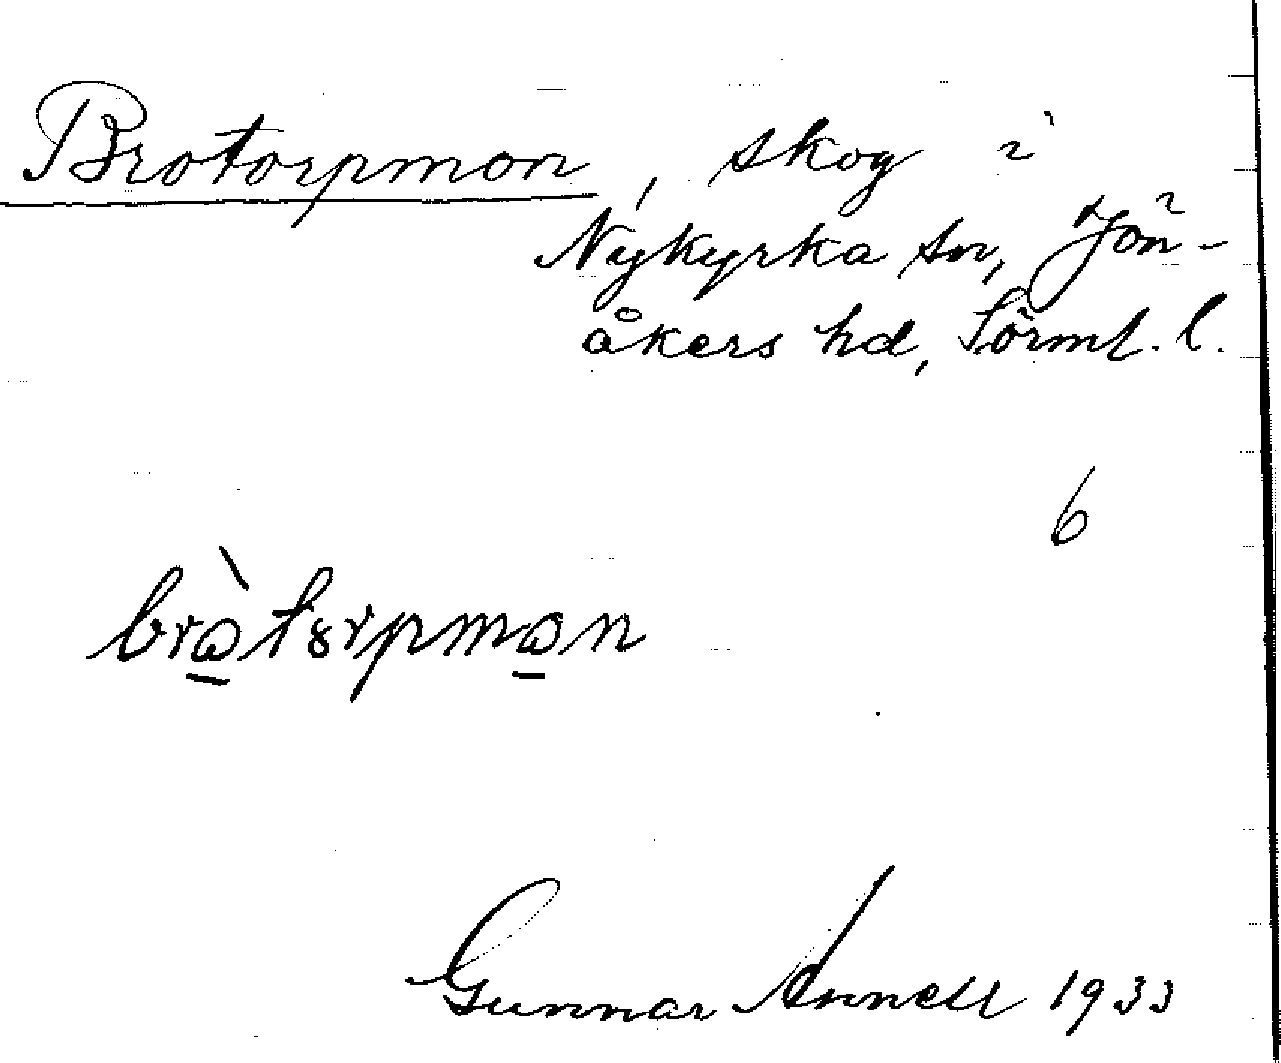 Brotorpmon, skog i
Nykyrka sn, Jön-
åkers hd, Sörml. l.
6
Gunnar Annell 1933